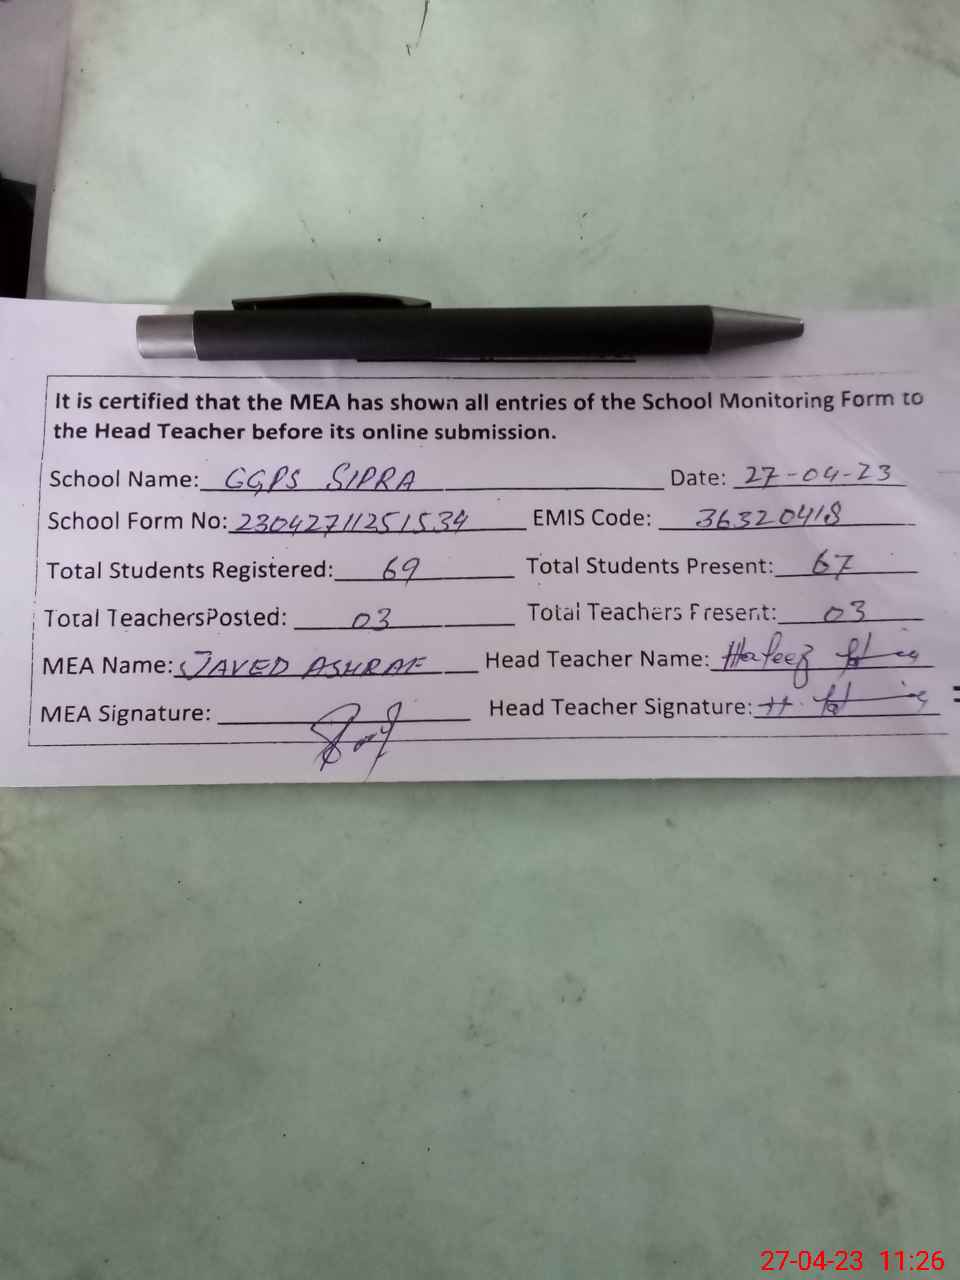 It is certified that the MEA has shown all entries of the School Monitoring Form to
the Head Teacher before its online submission.
School Name: GGPS SIPRA Date: 27-04-23
School Form No: 23042711251534 EMIS Code: 36320418
Total Students Registered: 69 Total Students Present: 67
Total TeachersPosted: 03 Total Teachers Present: 03
MEA Name: JAVED ASHRAF Head Teacher Name: Hafeez
MEA Signature: Head Teacher Signature: H.
27-04-23 11:26